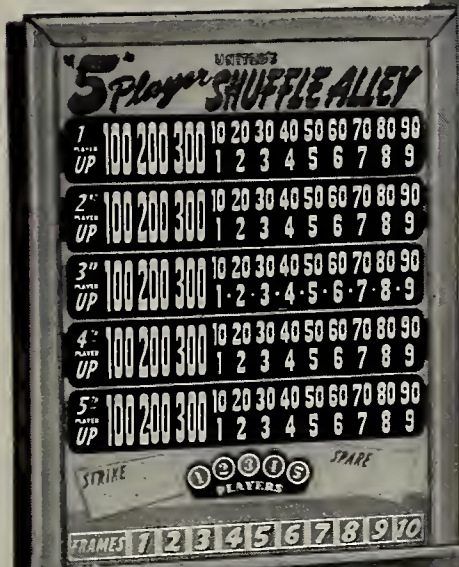 UNITED'S
"5" Player SHUFFLE ALLEY
1 PLAYER UP 100 200 300 10 20 30 40 50 60 70 80 90
1 2 3 4 5 6 7 8 9
2ND PLAYER UP 100 200 300 10 20 30 40 50 60 70 80 90
1 2 3 4 5 6 7 8 9
3RD PLAYER UP 100 200 300 10 20 30 40 50 60 70 80 90
1·2·3·4·5·6·7·8·9
4TH PLAYER UP 100 200 300 10 20 30 40 50 60 70 80 90
1 2 3 4 5 6 7 8 9
5TH PLAYER UP 100 200 300 10 20 30 40 50 60 70 80 90
1 2 3 4 5 6 7 8 9
STRIKE 1 2 3 4 5 SPARE
PLAYERS
FRAMES 1 2 3 4 5 6 7 8 9 10